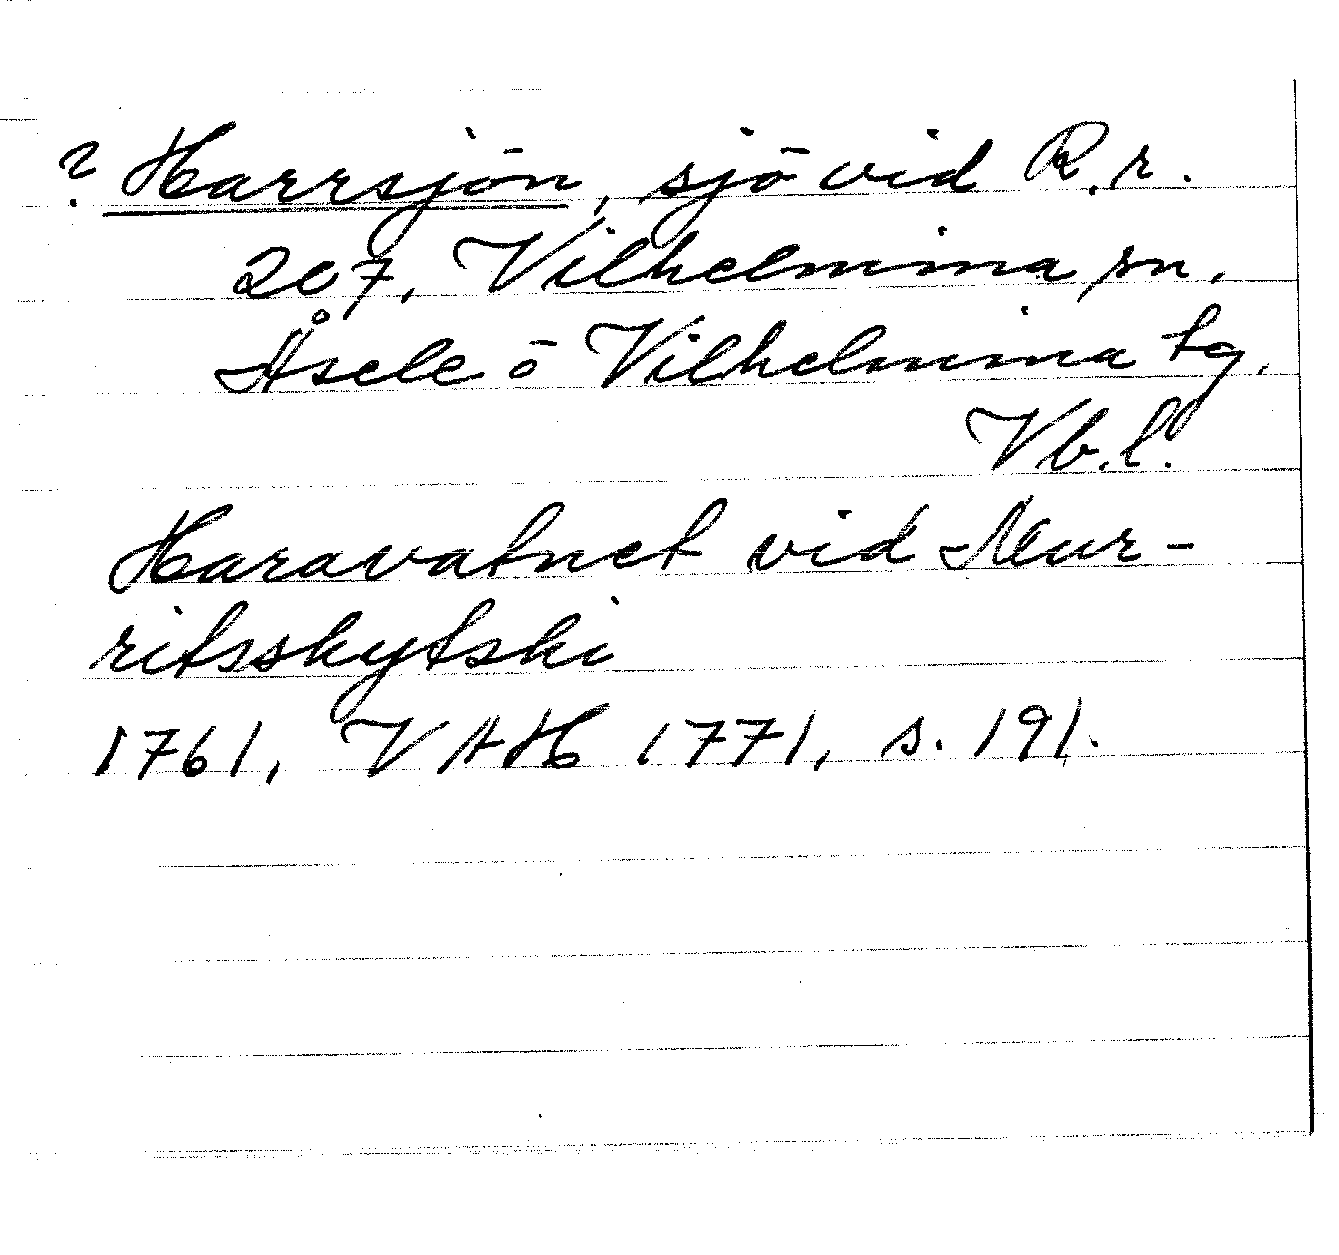 ? Harrsjön, sjö vid R.r.
207, Vilhelmina sn,
Åsele o Vilhelmina tg,
Vb.l.
Haravatnet vid Mur-
ritsskytski
1761, VAH 1771, s. 191.